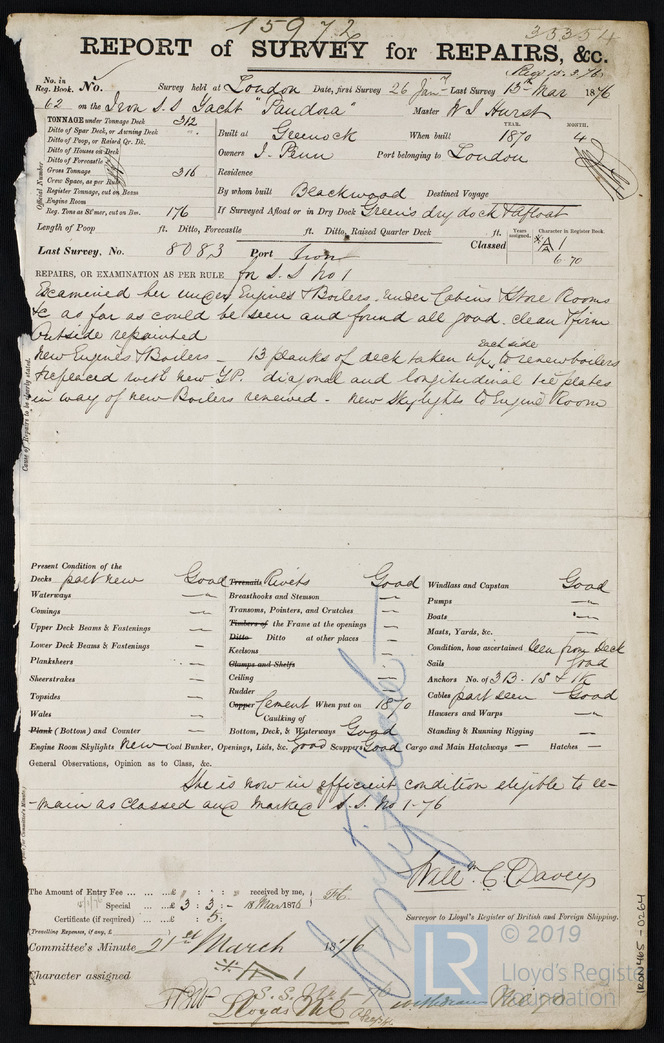 15972
35354
REPORT of SURVEY for REPAIRS, &c.
Recd 15.3.76
No. in Reg. Book. No. Survey held at London Date, first Survey 26 Jany Last Survey 15th Mar 1876
62 on the Iron S.S Yacht "Pandora" Master W I Hurst
TONNAGE under Tonnage Deck 312
Ditto of Spar Deck, or Awning Deck
Ditto of Poop, or Raised Qr. Dk.
Ditto of Houses on Deck
Ditto of Forecastle
Gross Tonnage 316
Crew Space, as per Rule
Register Tonnage, cut on Beam
Engine Room
Reg. Tons as St'mer, cut on Bm. 176
Official Number
Built at Greenock When built YEAR. 1870 MONTH. 4
Owners I. Penn Port belonging to London
Residence
By whom built Blackwood Destined Voyage
If Surveyed Afloat or in Dry Dock Green's dry dock & afloat
Length of Poop ft. Ditto, Forecastle ft. Ditto, Raised Quarter Deck ft.
Last Survey, No. 8083 Port Iron Classed Years assigned. Character in Register Book. A 1
6.70
REPAIRS, OR EXAMINATION AS PER RULE for S.S No 1
Examined her under Engines & Boilers, under Cabins & Store Rooms
&c as far as could be seen and found all good, clean & firm
Outside repainted
New Engines & Boilers - 13 planks of deck taken up each side to renew boilers
& replaced with new YP. diagonal and longitudinal tie plates
in way of new Boilers renewed - New Skylights to Engine Room
Cause of Repairs to be clearly stated.
Present Condition of the
Decks part new Good Treenails Rivets Good Windlass and Capstan Good
Waterways — Breasthooks and Stemson — Pumps —
Comings — Transoms, Pointers, and Crutches — Boats —
Upper Deck Beams & Fastenings — Timbers of the Frame at the openings — Masts, Yards, &c. —
Lower Deck Beams & Fastenings — Ditto Ditto at other places — Condition, how ascertained seen from Deck
Planksheers — Keelsons — Sails Good
Sheerstrakes — Clamps and Shelfs Anchors No. of 3 B. 1 S & 1 K
Topsides — Ceiling — Cables part seen Good
Wales — Rudder — Hawsers and Warps —
Plank (Bottom) and Counter — Copper Cement When put on 1870 Standing & Running Rigging —
Caulking of Bottom, Deck, & Waterways Good
Engine Room Skylights New Coal Bunker, Openings, Lids, &c. Good Scuppers Good Cargo and Main Hatchways — Hatches —
General Observations, Opinion as to Class, &c.
She is now in efficient condition eligible to re-
-main as Classed and Marked S.S. No 1-76
Willm C. Davey
Surveyor to Lloyd's Register of British and Foreign Shipping.
The Amount of Entry Fee ... ... ... £ : : received by me,
Special ... ... £ 3 : 3 : - 18 Mar 1876
Certificate (if required) ... £ : 5 :
(Travelling Expenses, if any, £
Committee's Minute 21st March 1876
Character assigned A 1
S.S. No 1-76
Lloyds MC
IRON465-0264
© 2019
LR
Lloyd's Register
Foundation